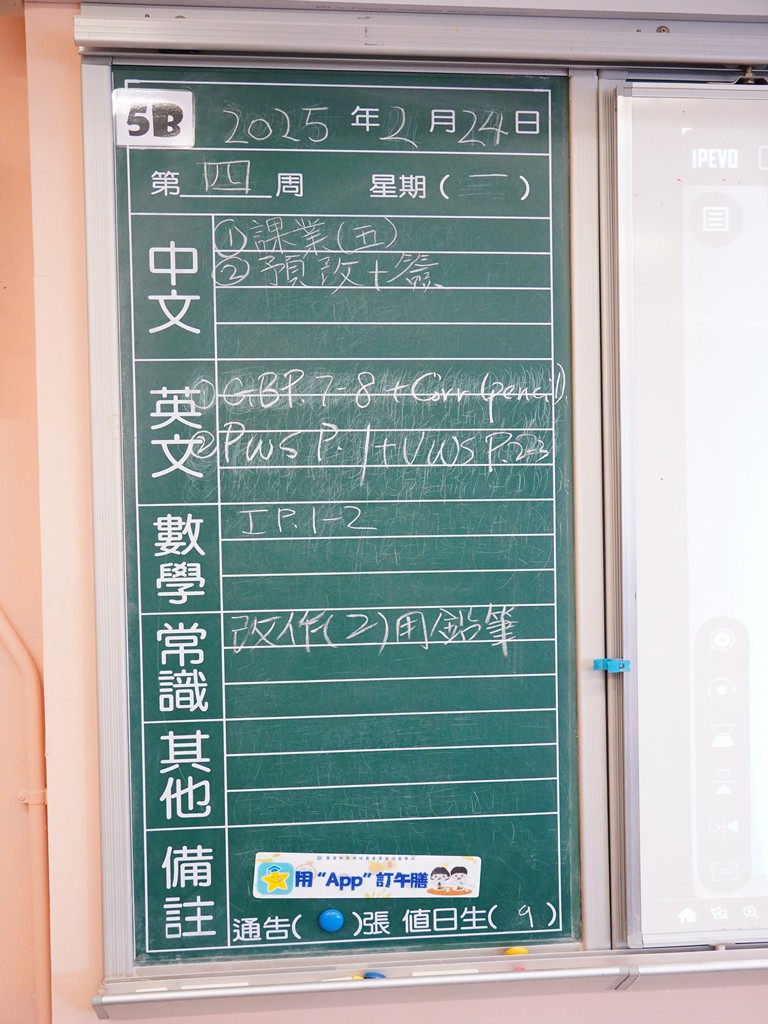 5B
2025年2月24日
第四周 星期(一)
中文
①課業(五)
②預改+簽
英文
①GB P.7-8 + Corr (pencil)
②PWS P.1+VWS P.2-3
數學
I P.1-2
常識
改作(2)用鉛筆
其他
備註
用“App”訂午膳
通告( )張 值日生(9)
IPEVO